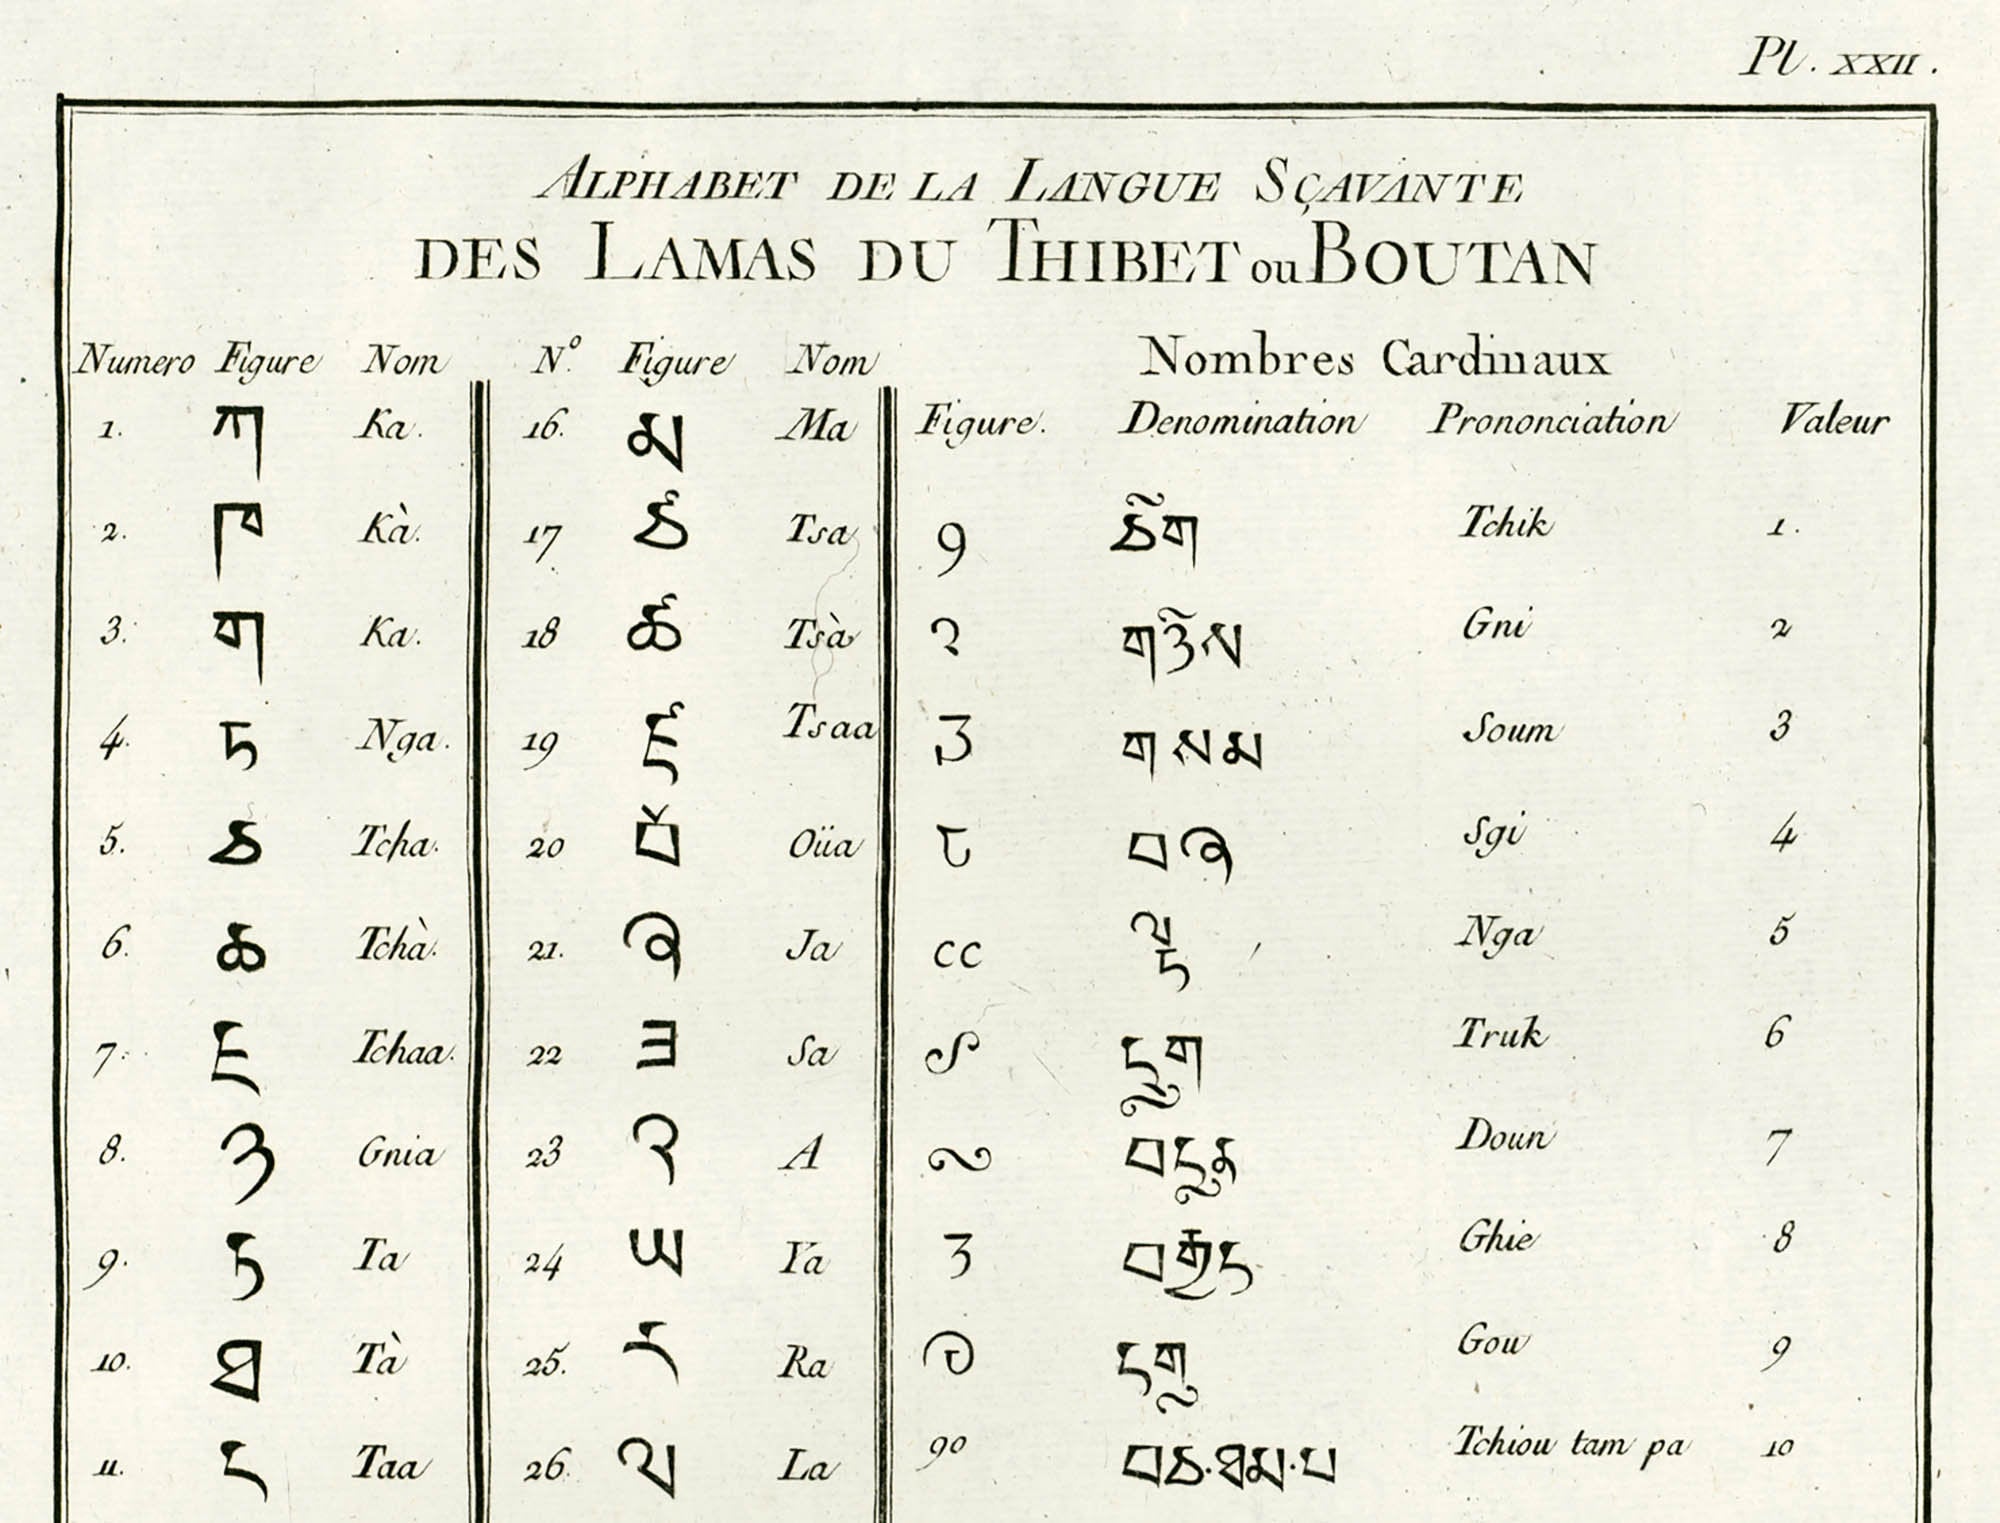 Pl. XXII.
ALPHABET DE LA LANGUE SÇAVANTE
DES LAMAS DU THIBET ou BOUTAN
Numero Figure Nom N.º Figure Nom Nombres Cardinaux
Figure. Denomination Prononciation Valeur
1. ཀ Ka. 16. མ Ma
2. ཁ Kà. 17 ཙ Tsa ༡ ཅིག Tchik 1.
3. ག Ka. 18 ཚ Tsà ༢ གཉིས Gni 2
4. ང Nga. 19 ཛ Tsaa ༣ གསམ Soum 3
5. ཅ Tcha. 20 ཝ Oüa ༤ བཞ Sgi 4
6. ཆ Tchà. 21. ཞ Ja ༥ ལྔ Nga 5
7. ཇ Tchaa. 22 ཟ Sa ༦ དུག Truk 6
8. ཉ Gnia 23 འ A ༧ བདུན Doun 7
9. ཏ Ta 24 ཡ Ya ༨ བརྒྱད Ghie 8
10. ཐ Tà 25. ར Ra ༩ དགུ Gou 9
11. ད Taa 26. ལ La ༡༠ བཅ་ཐམ་པ Tchiou tam pa 10